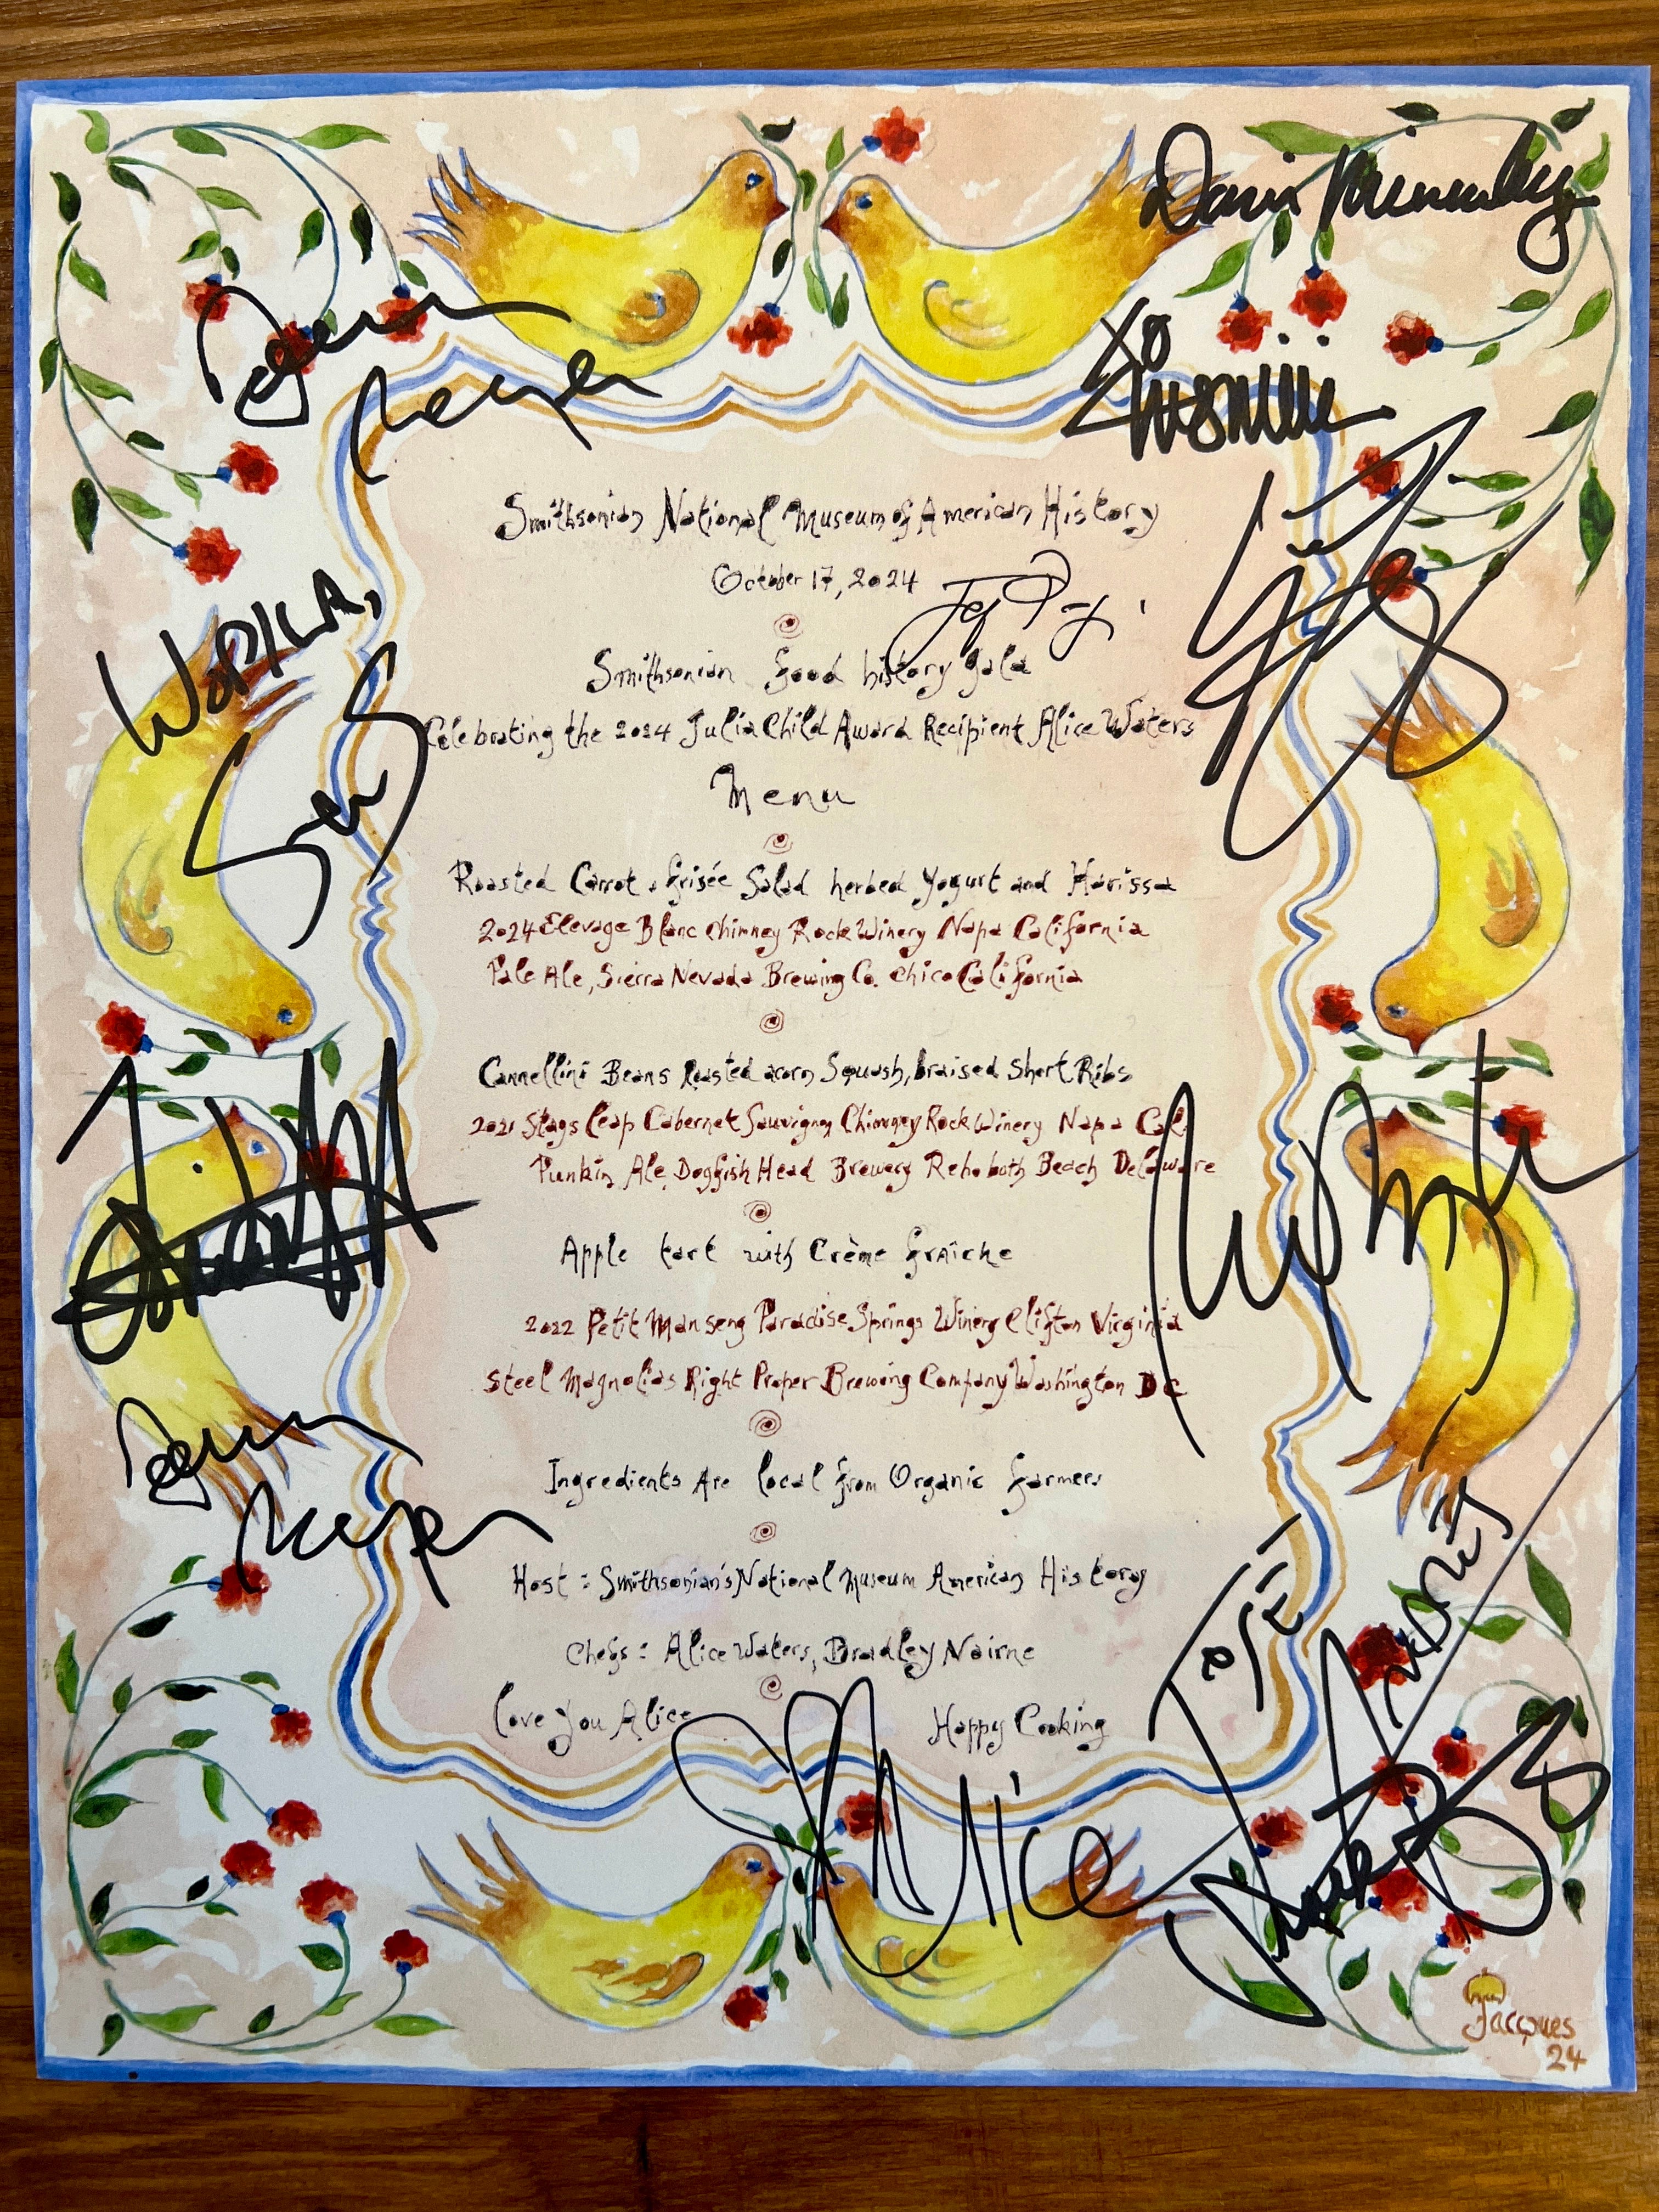 Smithsonian National Museum of American History
October 17, 2024
Smithsonian food history gala
Celebrating the 2024 Julia Child Award Recipient Alice Waters
Menu
Roasted Carrot & frisée Salad herbed Yogurt and Harissa
2024 Elevage Blanc Chimney Rock Winery Napa California
Pale Ale, Sierra Nevada Brewing Co. Chico California
Cannellini Beans Roasted acorn Squash, braised Short Ribs
2021 Stags leap Cabernet Sauvignon Chimney Rock Winery Napa Cal.
Punkin Ale, Dogfish Head Brewery Rehoboth Beach Delaware
Apple tart with Crème fraîche
2022 Petit Manseng Paradise Springs Winery Clifton Virginia
Steel Magnolias Right Proper Brewing Company Washington DC
Ingredients Are local from Organic farmers
Host: Smithsonian's National Museum American History
Chefs: Alice Waters, Bradley Nairne
love you Alice
Happy Cooking
WOPILA,
XO
José Andrés
Alice
Jacques
24